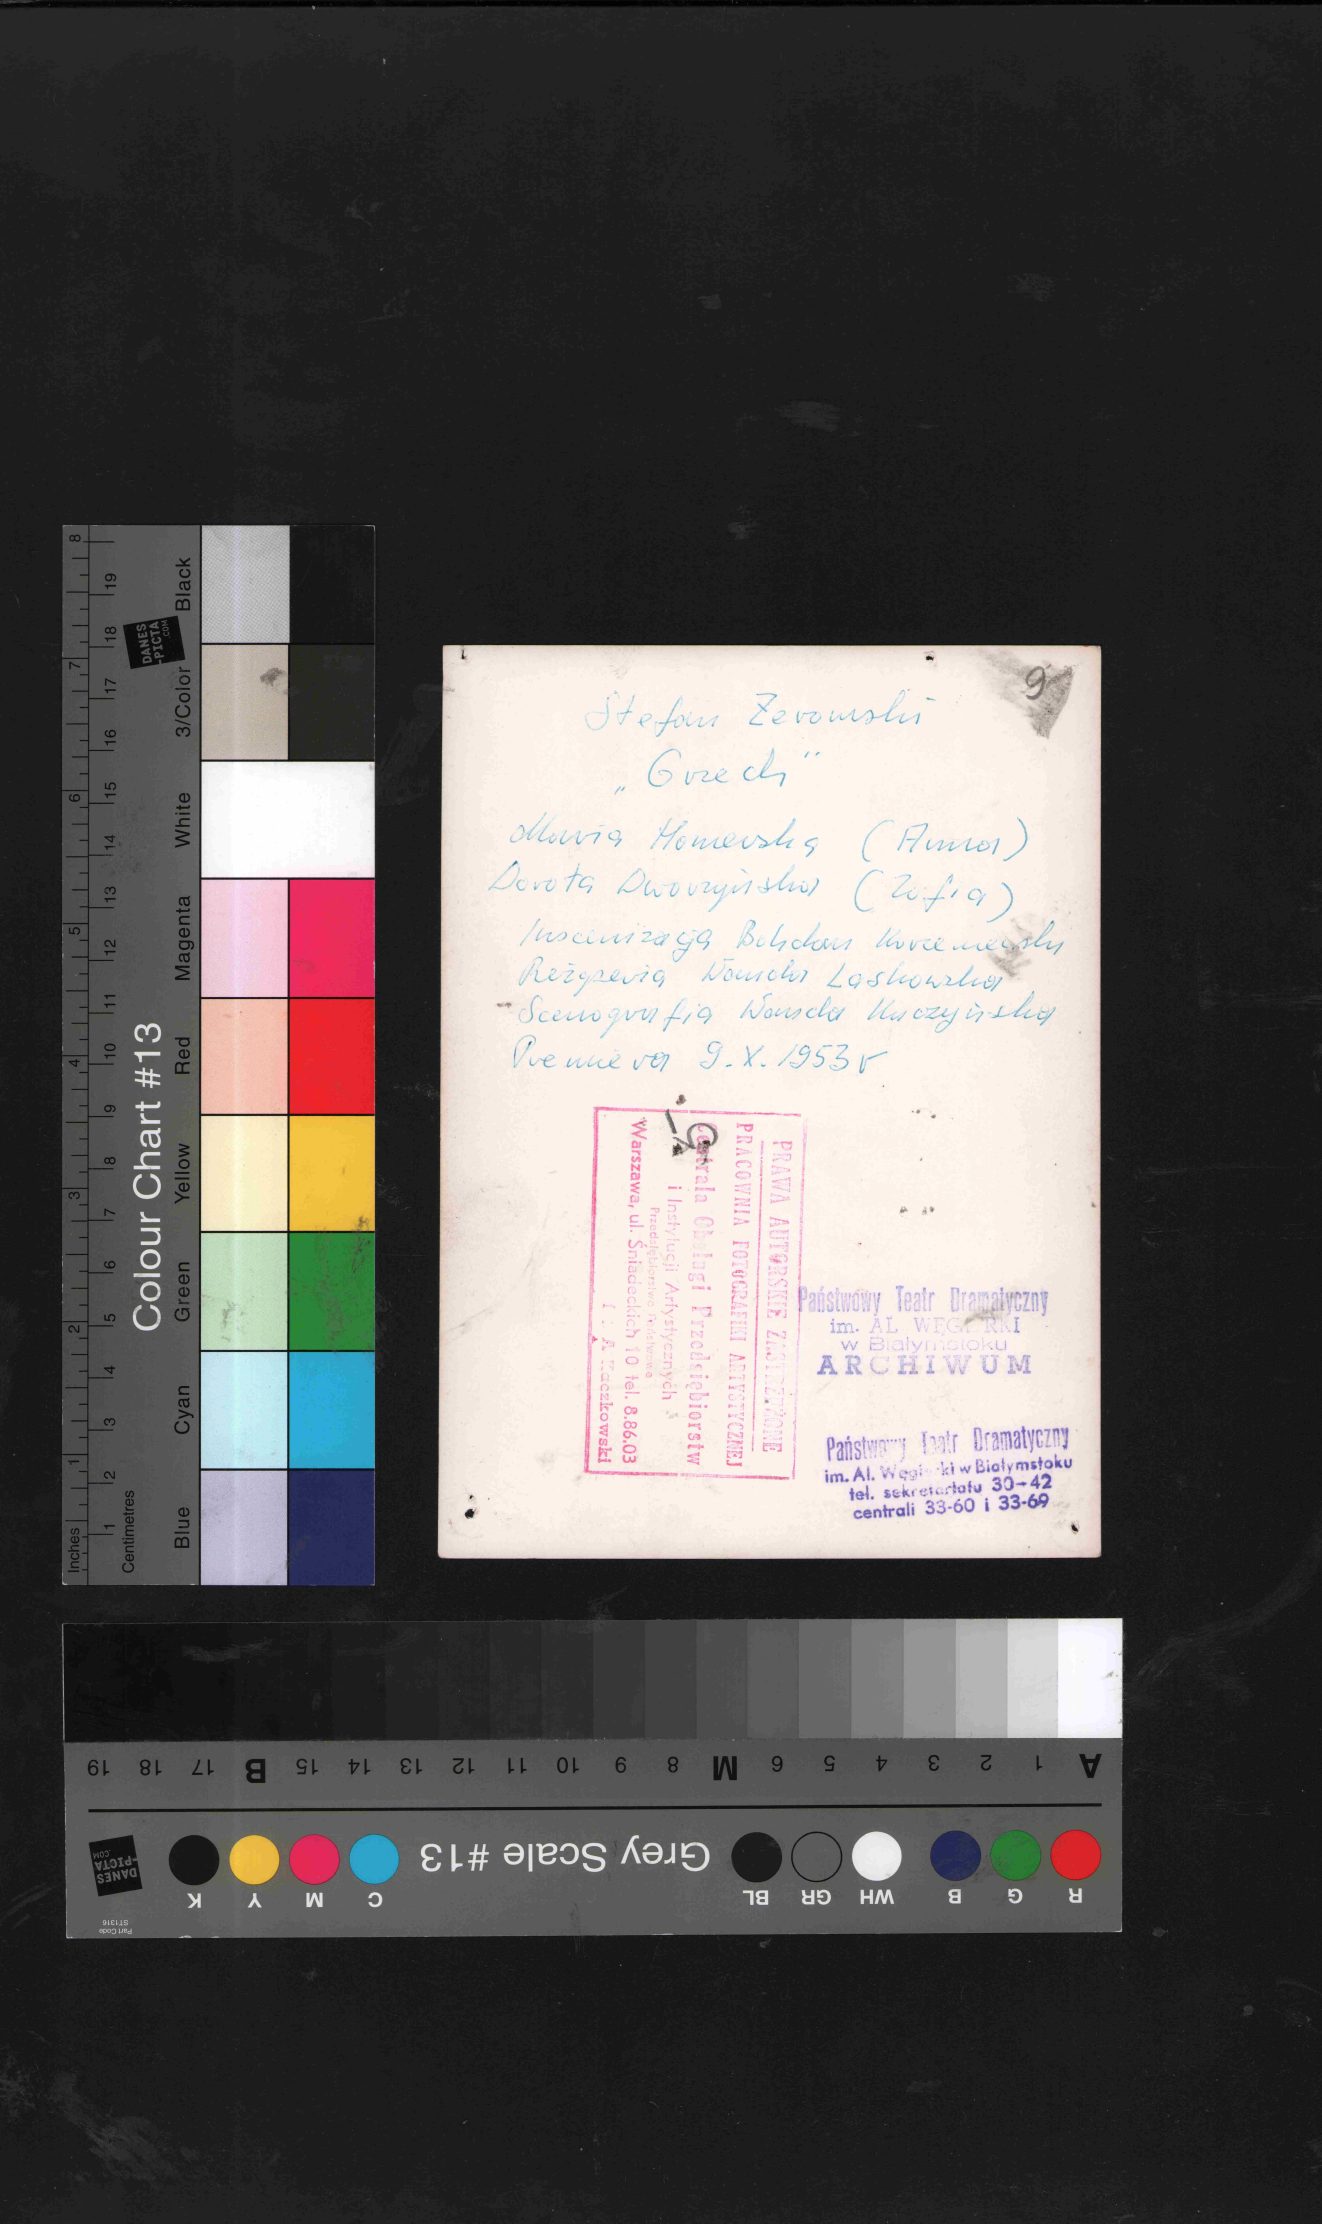 9
Stefan Żeromski
„Grzech”
Maria Homerska (Anna)
Dorota Dworzyńska (Zofia)
Inscenizacja Bohdan Korzeniewski
Reżyseria Wanda Laskowska
Scenografia Wanda
Premiera 9.X.1953 r
PRAWA AUTORSKIE ZASTRZEŻONE
PRACOWNIA FOTOGRAFIKI ARTYSTYCZNEJ
Centrala Obsługi Przedsiębiorstw
i Instytucji Artystycznych
Przedsiębiorstwo Państwowe
Warszawa, ul. Śniadeckich 10 tel. 8.86.03
Kaczkowski
Państwowy Teatr Dramatyczny
im. AL WĘGIERKI
w Białymstoku
ARCHIWUM
Państwowy Teatr Dramatyczny
im. Al. Węgierki w Białymstoku
tel. sekretariatu 30-42
centrali 33-60 i 33-69
Colour Chart #13
DANES
-PICTA
.COM
Inches 1 2 3 4 5 6 7 8
Centimetres 1 2 3 4 5 6 7 8 9 10 11 12 13 14 15 16 17 18 19
Blue Cyan Green Yellow Red Magenta White 3/Color Black
Grey Scale #13
A 1 2 3 4 5 6 M 8 9 10 11 12 13 14 15 B 17 18 19
R G B WH GR BL C M Y K
DANES
-PICTA
.COM
Part Code
ST1316